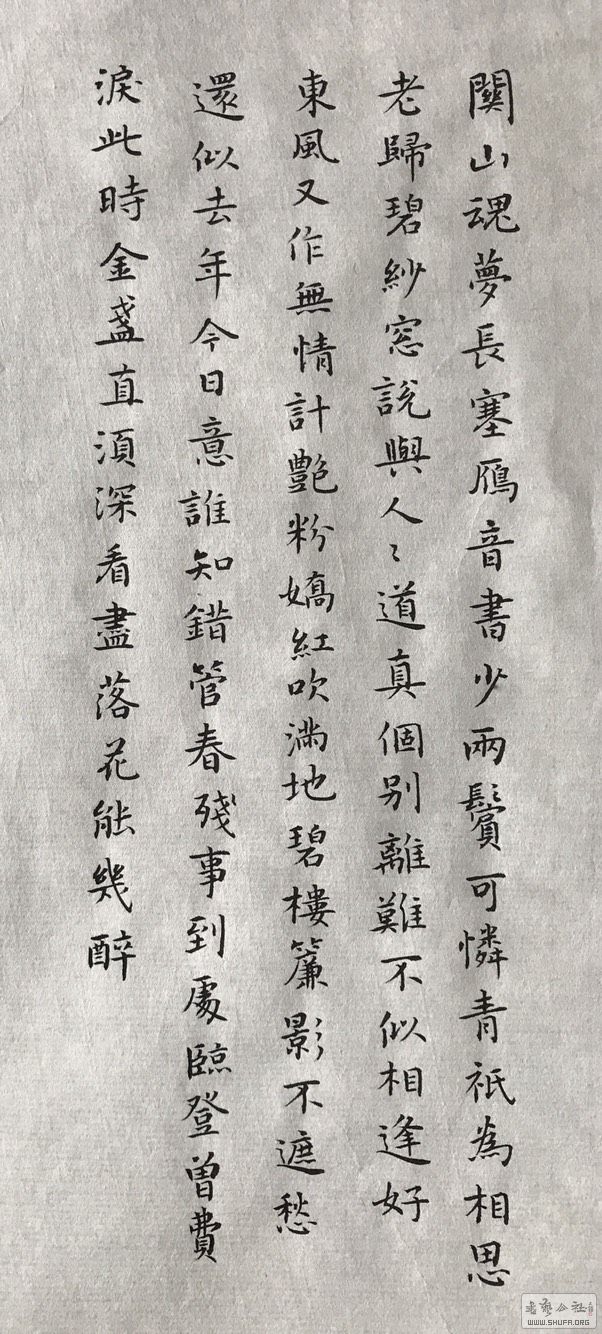 關山魂夢長塞鴈音書少兩鬢可憐青祇為相思
老歸碧紗窓說與人〻道真個别離難不似相逢好
東風又作無情計艶粉嬌紅吹滿地碧樓簾影不遮愁
還似去年今日意誰知錯管春殘事到處臨登曾費
淚此時金盞直須深看盡落花能幾醉
書藝公社
WWW.SHUFA.ORG